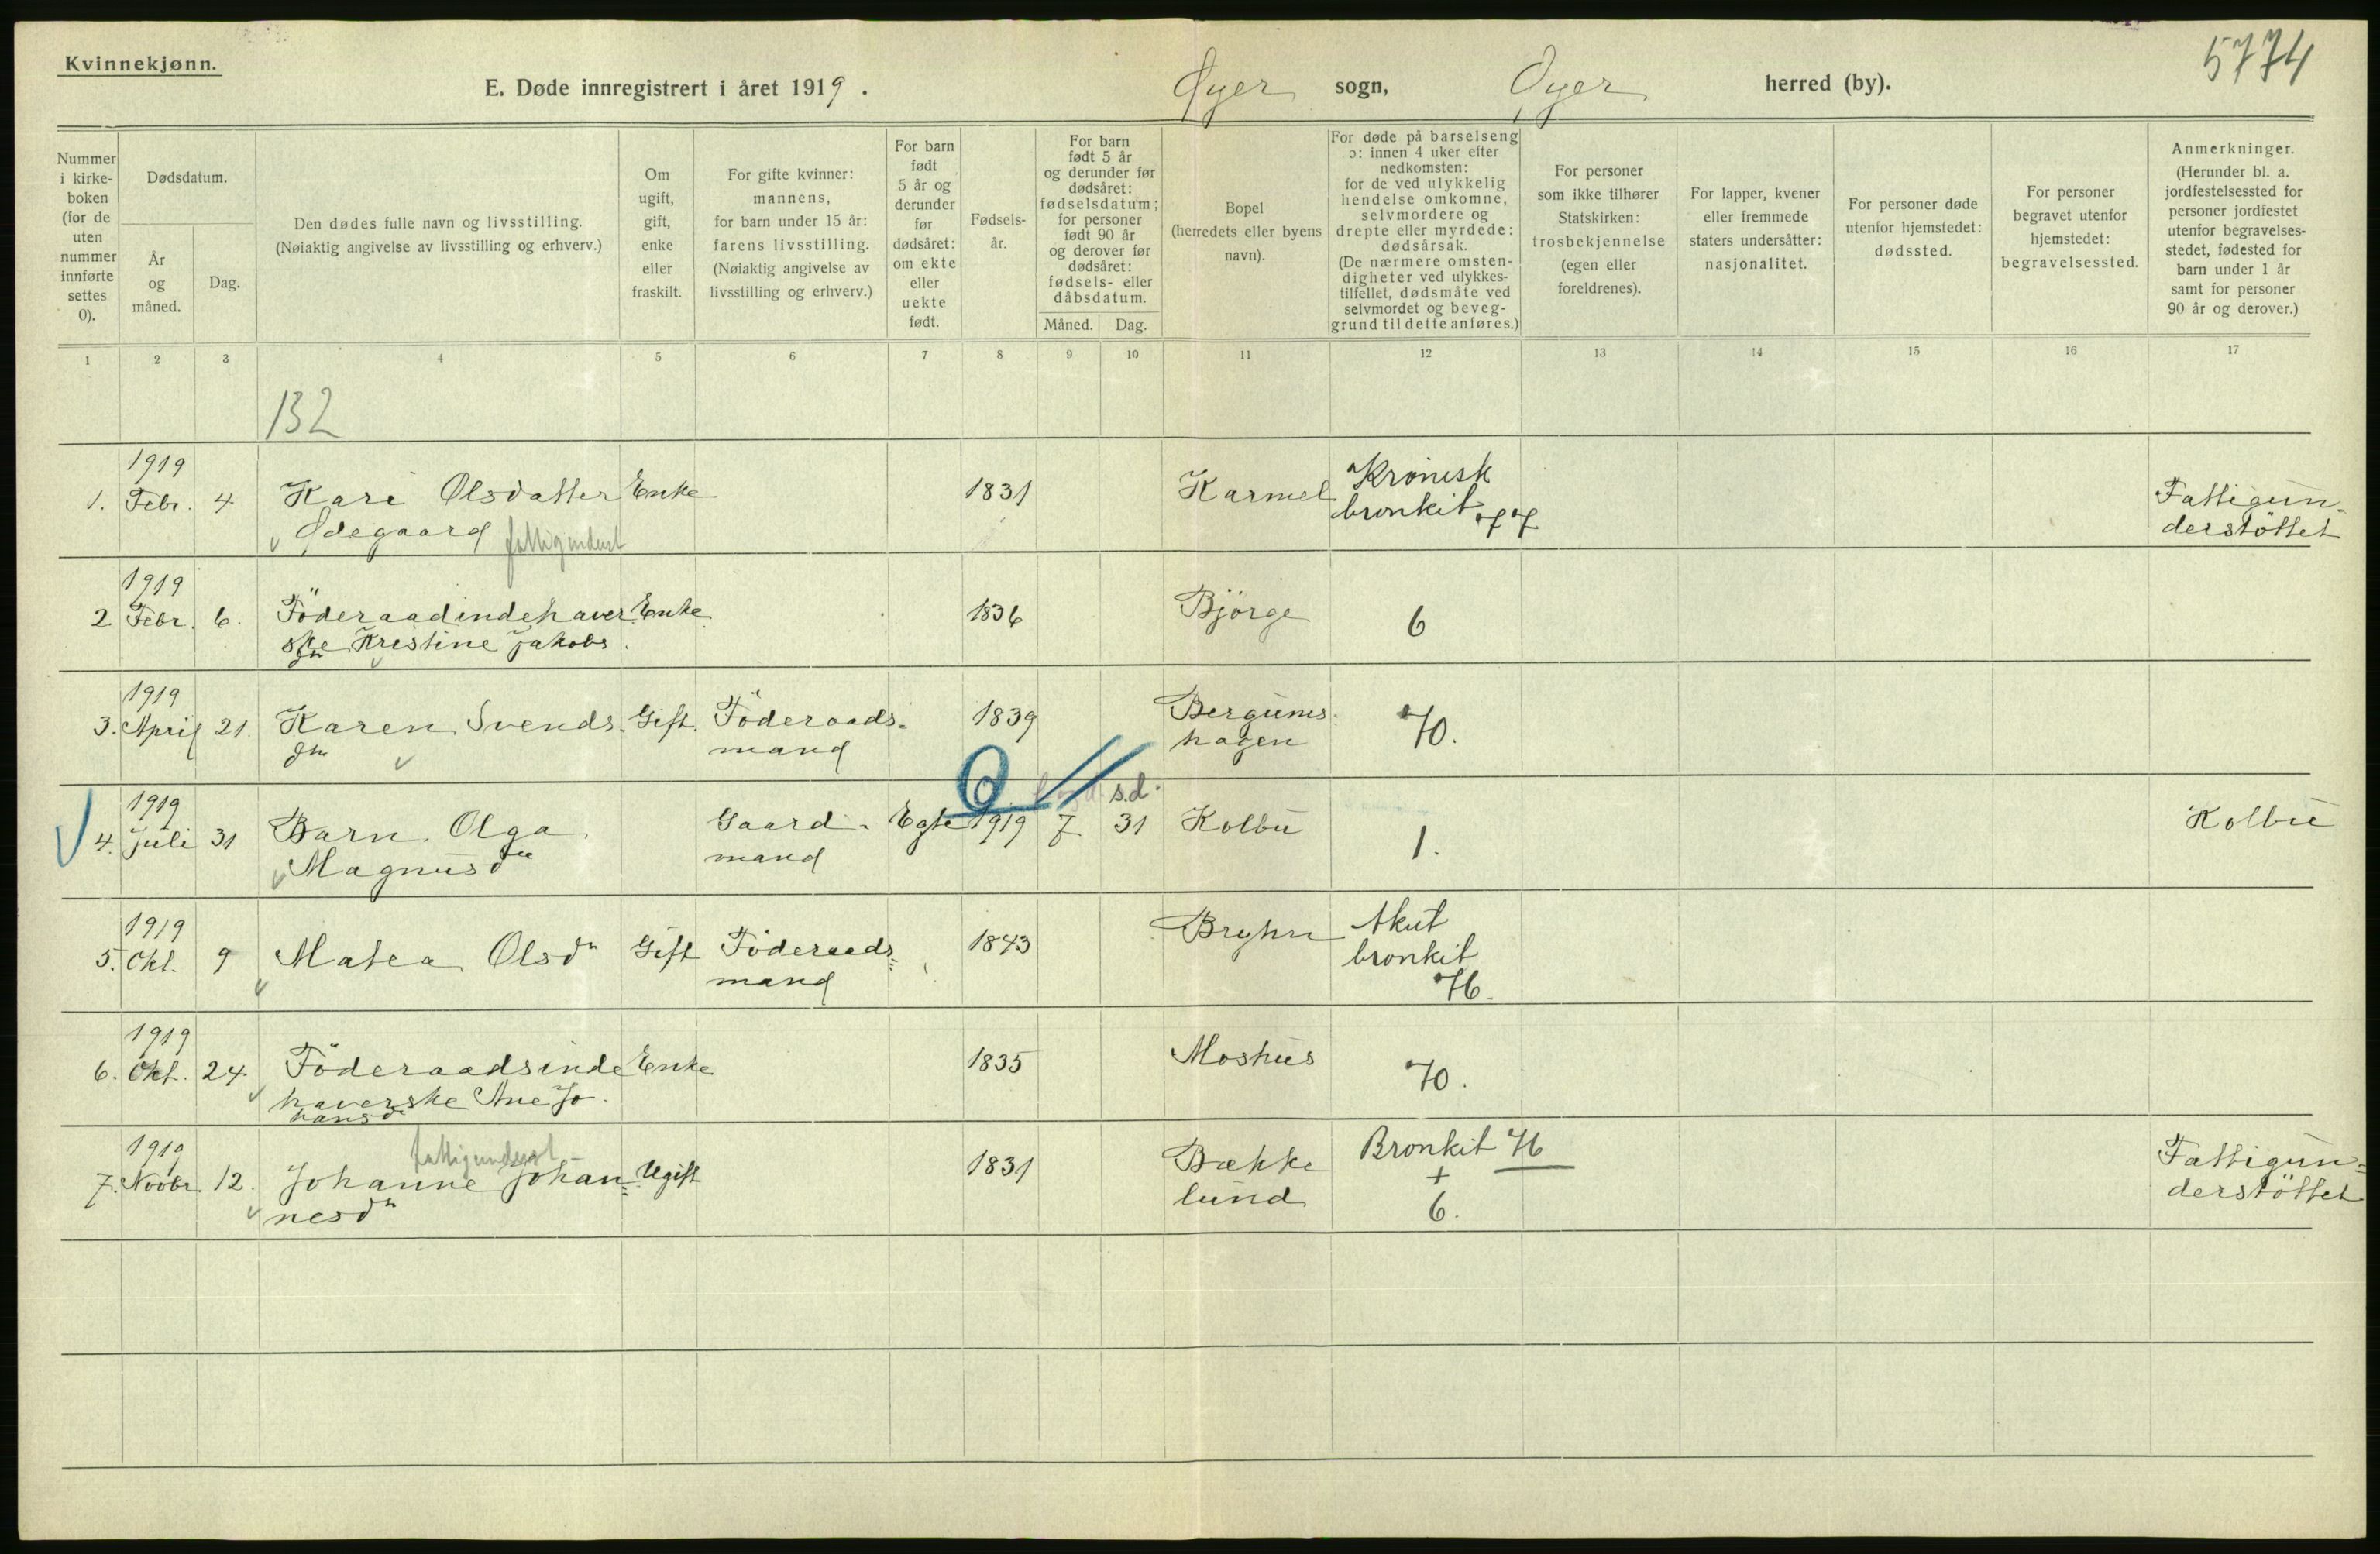 Kvinnekjønn.
5774
E. Døde innregistrert i året 1919.
Øyer sogn, Øyer herred (by).
Nummer i kirke-boken (for de uten nummer innførte settes 0).
Dødsdatum.
År og måned.
Dag.
Den dødes fulle navn og livsstilling.
(Nøiaktig angivelse av livsstilling og erhverv.)
Om ugift, gift, enke eller fraskilt.
For gifte kvinner: mannens, for barn under 15 år: farens livsstilling. (Nøiaktig angivelse av livsstilling og erhverv.)
For barn født 5 år og derunder før dødsåret: om ekte eller uekte født.
Fødsels-år.
For barn født 5 år og derunder før dødsåret: fødselsdatum; for personer født 90 år og derover før dødsåret: fødsels- eller dåbsdatum.
Måned. Dag.
Bopel (herredets eller byens navn).
For døde på barselseng ɔ: innen 4 uker efter nedkomsten: for de ved ulykkelig hendelse omkomne, selvmordere og drepte eller myrdede: dødsårsak. (De nærmere omsten-digheter ved ulykkes-tilfellet, dødsmåte ved selvmordet og beveg-grund til dette anføres.)
For personer som ikke tilhører Statskirken: trosbekjennelse (egen eller foreldrenes).
For lapper, kvener eller fremmede staters undersåtter: nasjonalitet.
For personer døde utenfor hjemstedet: dødssted.
For personer begravet utenfor hjemstedet: begravelsessted.
Anmerkninger. (Herunder bl. a. jordfestelsessted for personer jordfestet utenfor begravelses-stedet, fødested for barn under 1 år samt for personer 90 år og derover.)
1 2 3 4 5 6 7 8 9 10 11 12 13 14 15 16 17
132
1919
1. Febr. 4 Kari Olsdatter Enke 1831 Karmel Kronisk bronkit Fattigun-
Ødegaard fattigunderst derstöttet
1919
2 Febr. 6. Föderaadindehaver Enke 1836 Björge 6
ske Kristine Jakobs
dtr
1919
3. April 21. Karen Svends. Gift. Föderaads- 1839 Bergums 70.
dtr mand hagen
1919 s.d.
4. Juli 31 Barn. Olga Gaard- Egte 1919 7 31 Kolbu 1. Kolbu
Magnusdtr mand
1919
5. Okt. 9 Matea Olsdtr Gift Föderaads 1843 Bryhn Akut
mand bronkit
76.
1919
6. Okt. 24. Föderaadsinde Enke 1835 Moshus 70.
haverske Ane Jo
hansdtr
1919 fattigunderst
7. Novbr. 12. Johanne Johan= Ugift 1831 Bække Bronkit 76 Fattigun=
nesdtr lund + derstöttet
6.